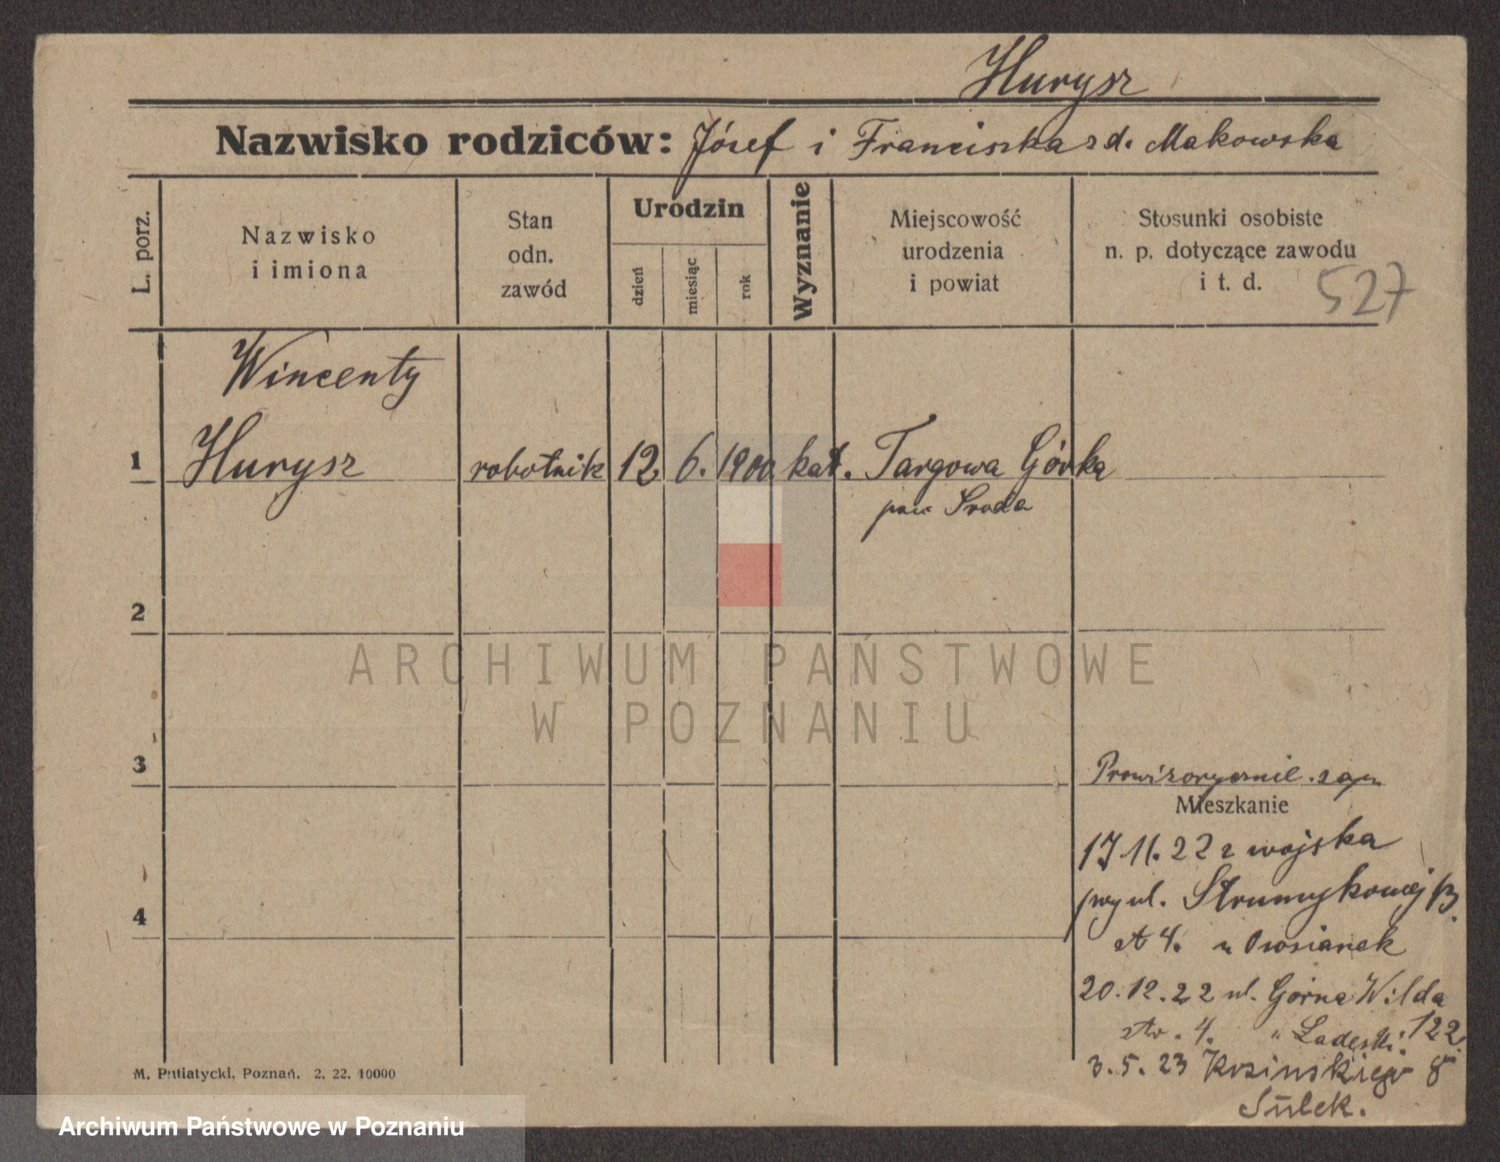 Hurysz
Nazwisko rodziców: Józef i Franciszka z d. Makowska
L. porz.
Nazwisko
i imiona
Stan
odn.
zawód
Urodzin
dzień
miesiąc
rok
Wyznanie
Miejscowość
urodzenia
i powiat
Stosunki osobiste
n. p. dotyczące zawodu
i t. d.
527
Wincenty
1 Hurysz robotnik 12. 6. 1900 kat. Targowa Górka
pow Środa
2
ARCHIWUM PAŃSTWOWE
W POZNANIU
3
Mieszkanie
17.11.22 z wojska
przy ul. Strumykowej
4
u Owsianek
20.12.22 ul. Górna Wilda
122
4. "
3.5.23 8
M. Putiatycki, Poznań. 2. 22. 10000
Archiwum Państwowe w Poznaniu